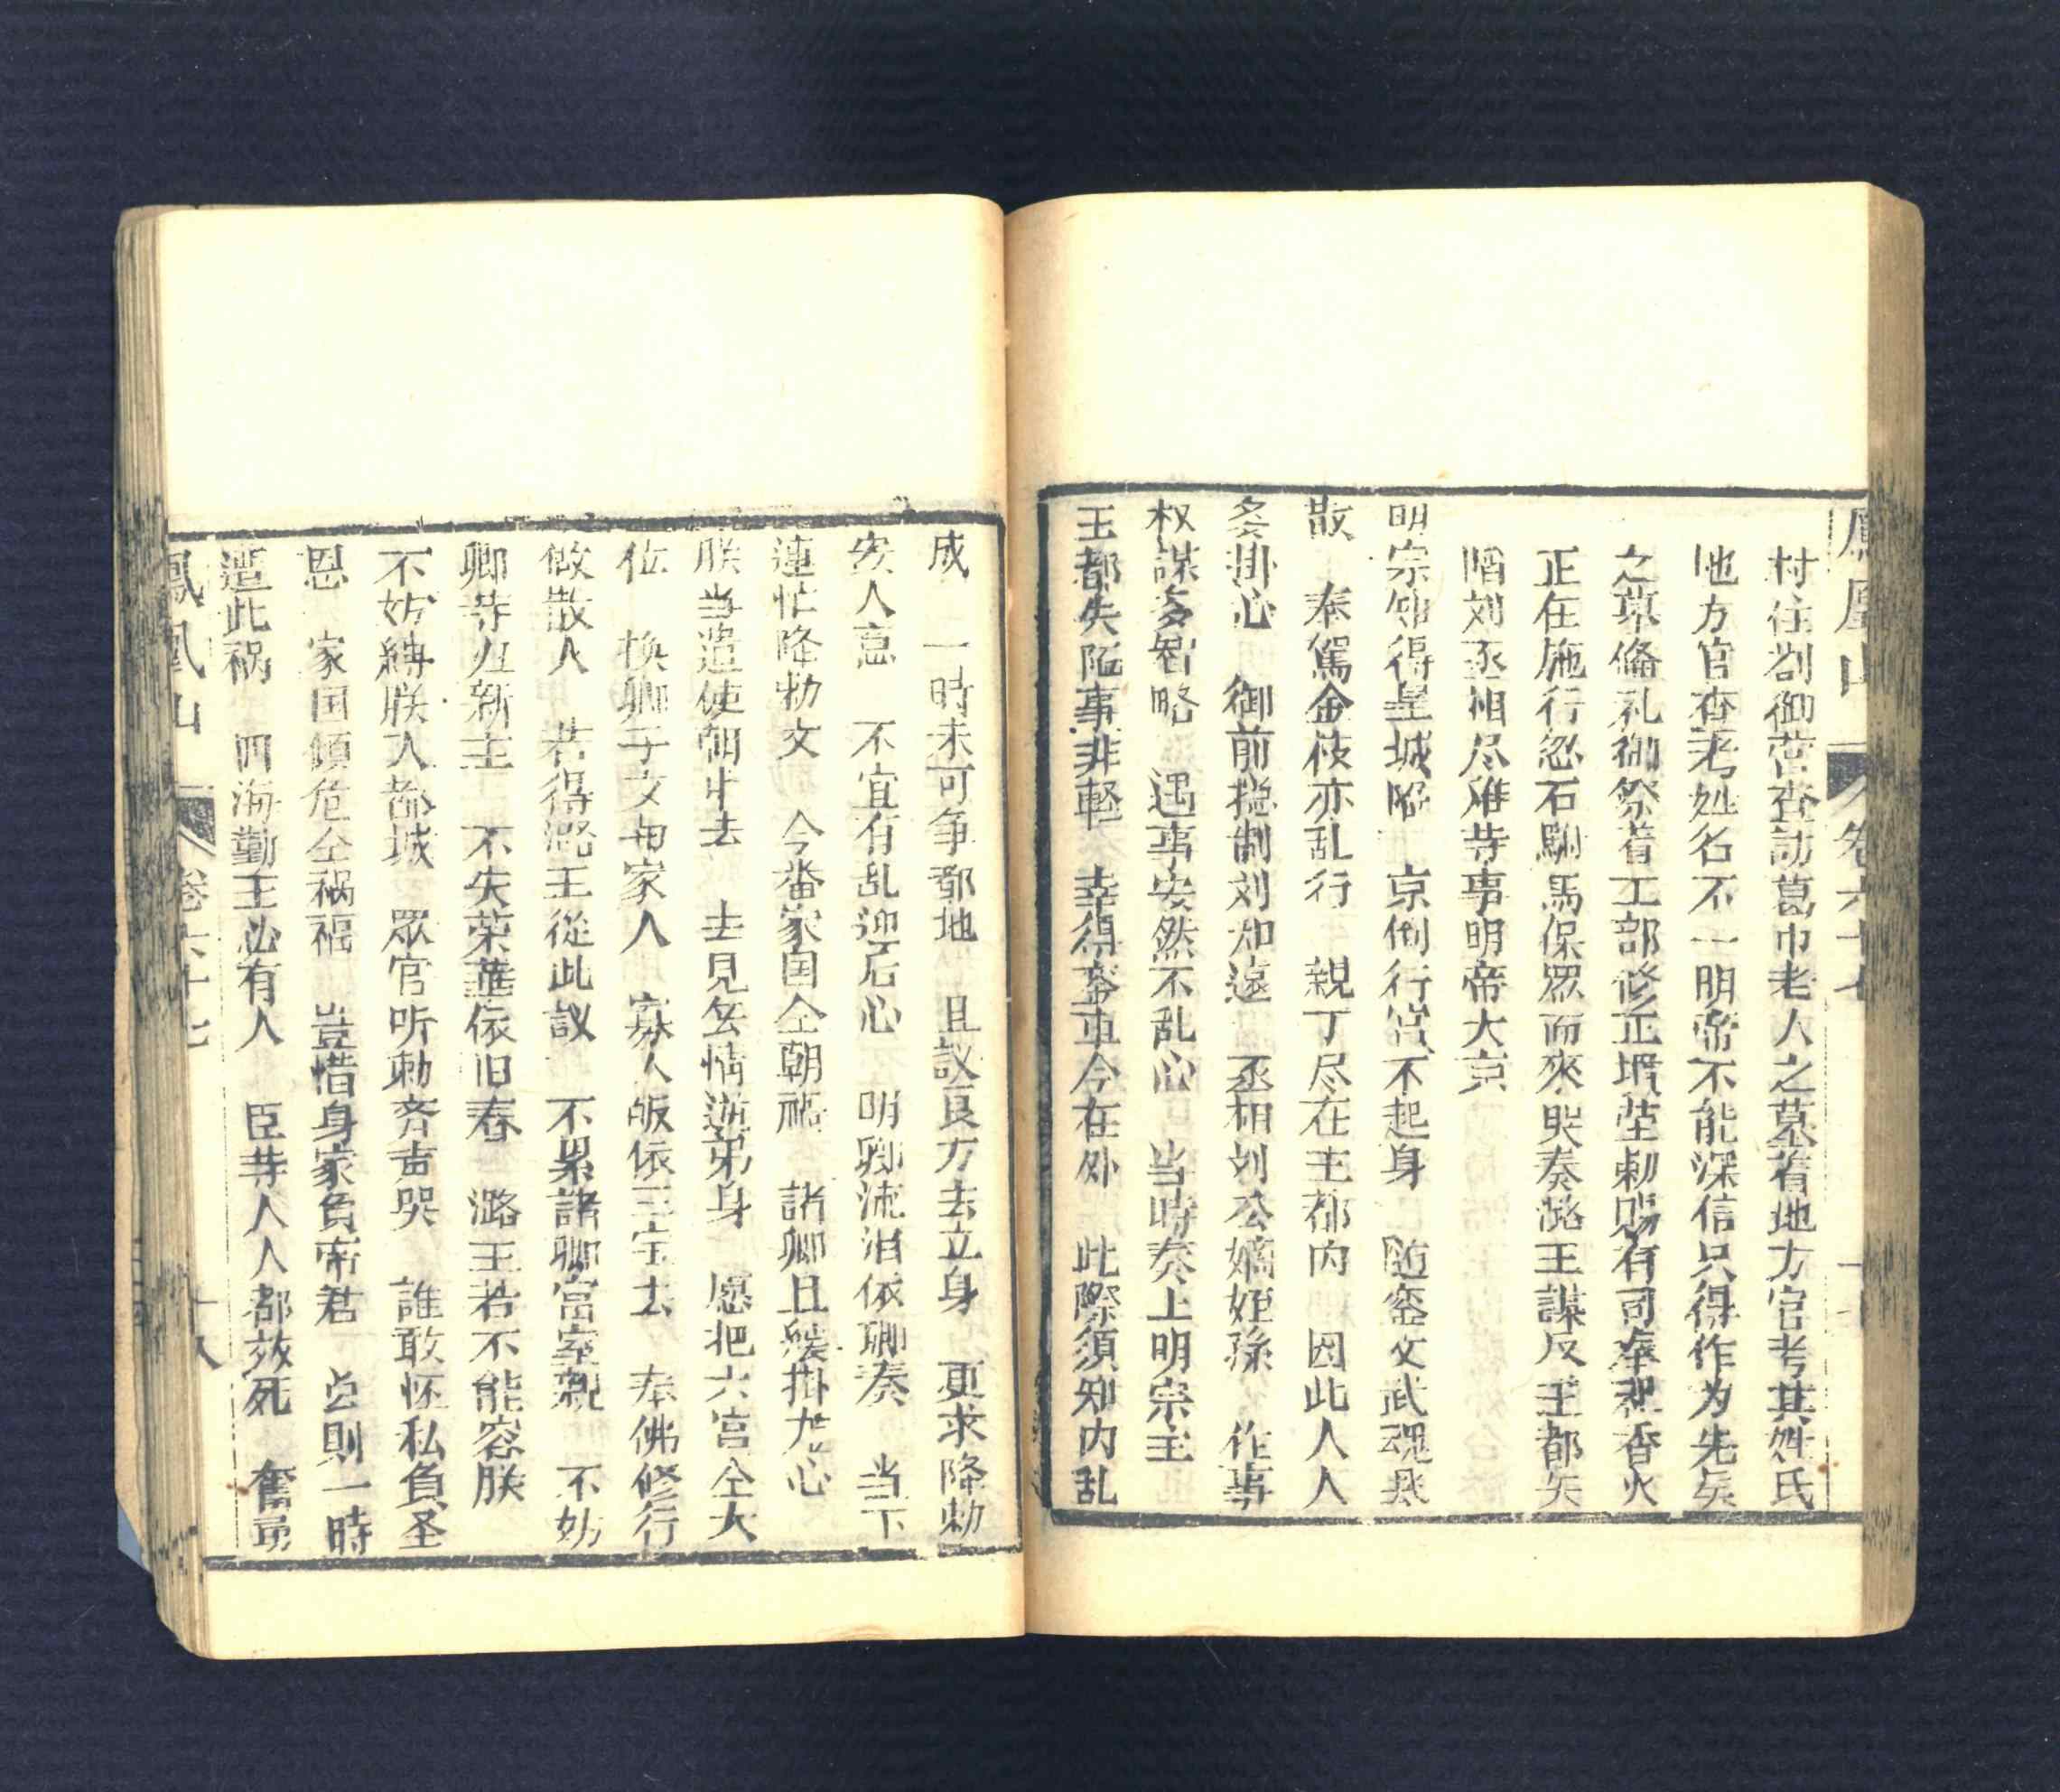 鳳凰山 卷六十七
村住劄御营查訪葛巾老人之墓着地方官考其姓氏
地方官查考姓名不一明帝不能深信只得作为先矣
之草俻礼御祭着工部修正墳茔勅赐有司奉祀香火
正在施行忽石駙馬保眾而來哭奏潞王謀反王都失
陷刘丞相尽难等事明帝大京
明宗知得皇城陷 京倒行宫不起身 随銮文武魂飛
散 奉駕金枝亦乱行 親丁尽在王都内 因此人人
多掛心 御前捴制刘知遠 丞相刘公嫡姪孫 作事
权謀多智略 遇事安然不乱心 当時奏上明宗主
王都失陷事非輕 幸得銮車今在外 此際須知内乱
成 一時未可争都地 且議良方去立身 更求降勅
安人意 不宜有乱逆后心 明卿流泪依卿奏 当下
連忙降勅文 今畨家国仝朝禍 諸卿且緩掛虑心
朕当遣使朝中去 去見無情逆弟身 愿把六宫仝大
位 换卿子女母家人 寡人皈依三宝去 奉佛修行
做散人 若得潞王從此議 不累諸卿宫室親 不妨
卿等丑新主 不失荣華依旧春 潞王若不能容朕
不妨縛朕入都城 眾官听勅齐声哭 誰敢怀私負圣
恩 家国傾危仝禍福 豈惜身家負帝君 㸃則一時
遭此祸 四海勤王必有人 臣等人人都效死 奮勇
鳳凰山 卷六十七 十八